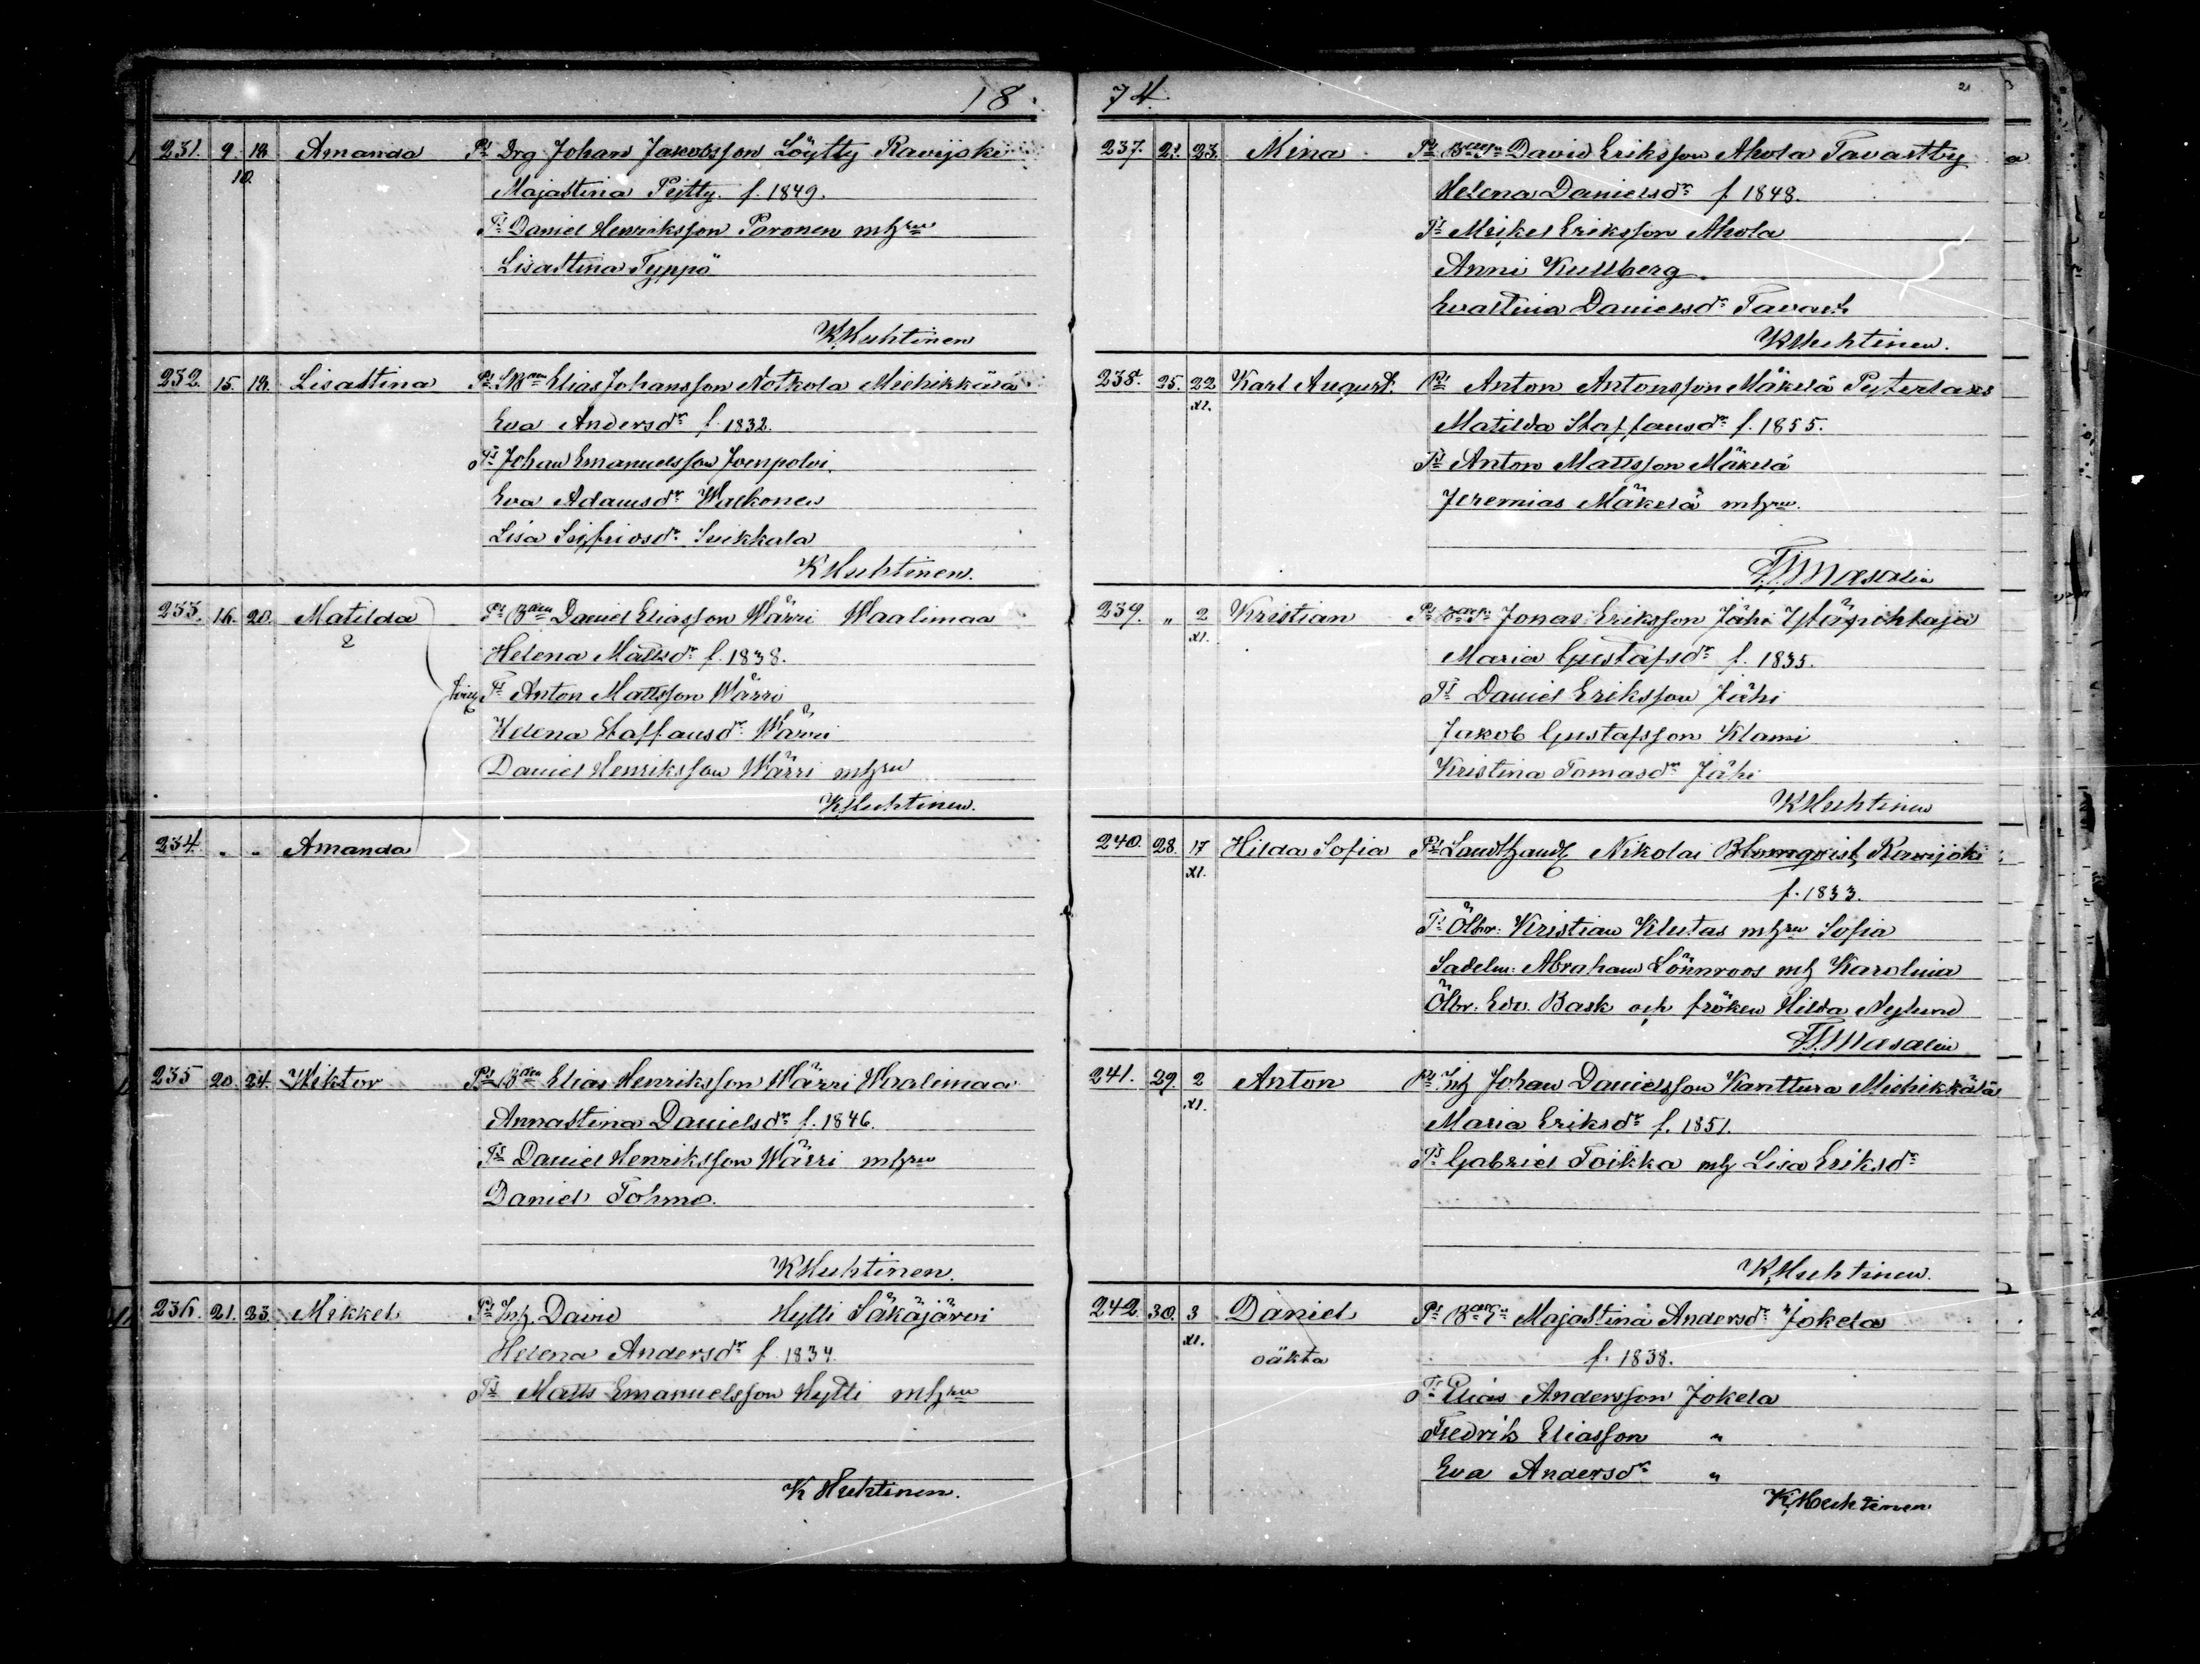 18
231. 9. 18. Amanda Ps Drg Johan Jakobsson Löytty Ravijoki
10. Majastina Pejtty. f. 1849.
Ts Daniel Henriksson Poronen mhru
Lisastina Typpö
K Huhtinen
232. 15. 18. Lisastina Ps Elias Johansson Notkola Miehikkälä
Eva Andersdr f. 1832.
Ts Johan Emanuelsson Joenpolvi.
Eva Adamsdr Walkonen
Lisa Sigfridsdr Suikkala
K Huhtinen.
233. 16. 20. Matilda Ps Bden Daniel Eliasson Wärri Waalimaa
2 Helena Mattsdr f. 1838.
Ts Anton Mattsson Wärri
Helena Staffansdr Wärri
Daniel Henriksson Wärri mhru
K Huhtinen.
234. " " Amanda
235 20. 24. Wiktor Ps Bden Elias Henriksson Wärri Waalimaa
Annastina Danielsdr f. 1846.
Ts Daniel Henriksson Wärri mhru
Daniel Tohmo.
K Huhtinen.
236. 21. 23. Mikkel Ps Inh. David Hytti Säkäjärvi
Helena Andersdr f. 1834.
Ts Matts Emanuelsson Hytti mhru
K Huhtinen.
74.
237. 21. 23. Mina Ps David Eriksson Ahola Tavastby
Helena Danielsdr f. 1848.
Ts Mikel Eriksson Ahola
Anni Kullberg.
Evastina Danielsdr Tavast
K Huhtinen.
238. 25. 22 Karl August. Ps Anton Antonsson Mäkelä Pyterlaks
XI. Matilda Staffansdr f. 1855.
Ts Anton Mattsson Mäkelä
Jeremias Mäkelä mhru.
F. Masalin
239. " 2 Kristian Ps Jonas Eriksson Jähi
XI. Maria Gustafsdr f. 1835.
Ts Daniel Eriksson Jähi
Jakob Gustafsson Klami
Kristina Tomasdr Jähi
K Huhtinen
240. 28. 17 Hilda Sofia Ps Landthandl Nikolai Blomqvist, Ravijoki
XI. f. 1833.
Ts Ölbr: Kristian Klutas mhru Sofia
Sadelm: Abraham Lönnroos mh Karolina
Ölbr: Edv. Bask och fröken Hilda Nylund
F. Masalin
241. 29. 2 Anton Ps Inh Johan Danielsson Kanttura Miehikkälä
XI. Maria Eriksdr f. 1851.
Ts Gabriel Toikka mh Lisa Eriksdr
K Huhtinen.
242. 30. 3 Daniel Ps Majastina Andersdr Jokela
XI. oäkta f. 1838.
Ts Elias Andersson Jokela
Fredrik Eliasson "
Eva Andersdr "
K Huhtinen